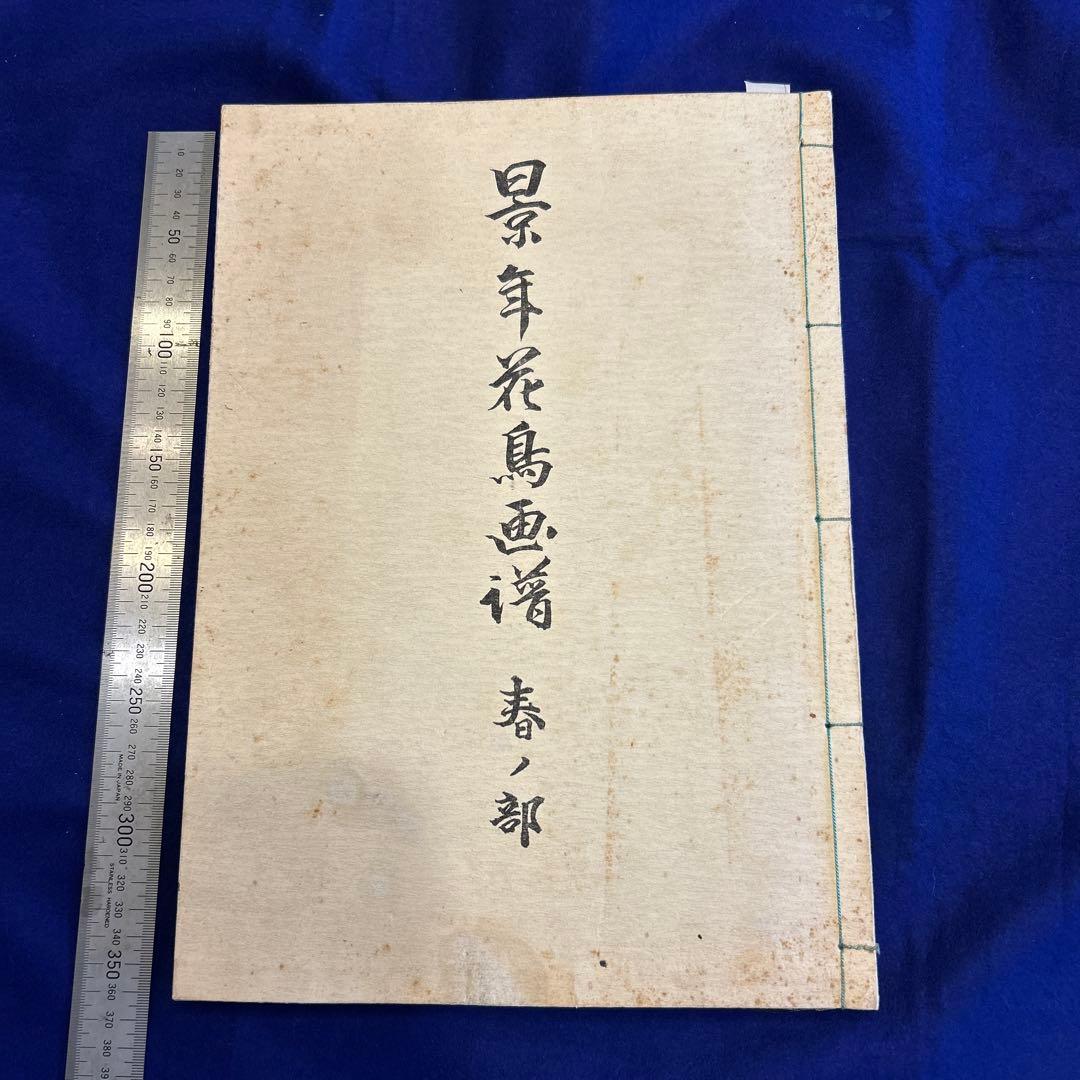 景年花鳥画譜 春ノ部
10
20
30
40
50
60
70
80
90
100
110
120
130
140
150
160
170
180
190
200
210
220
230
240
250
260
270
280
290
300
310
320
330
340
350
360
370
380
MADE IN JAPAN
STAINLESS HARDENED